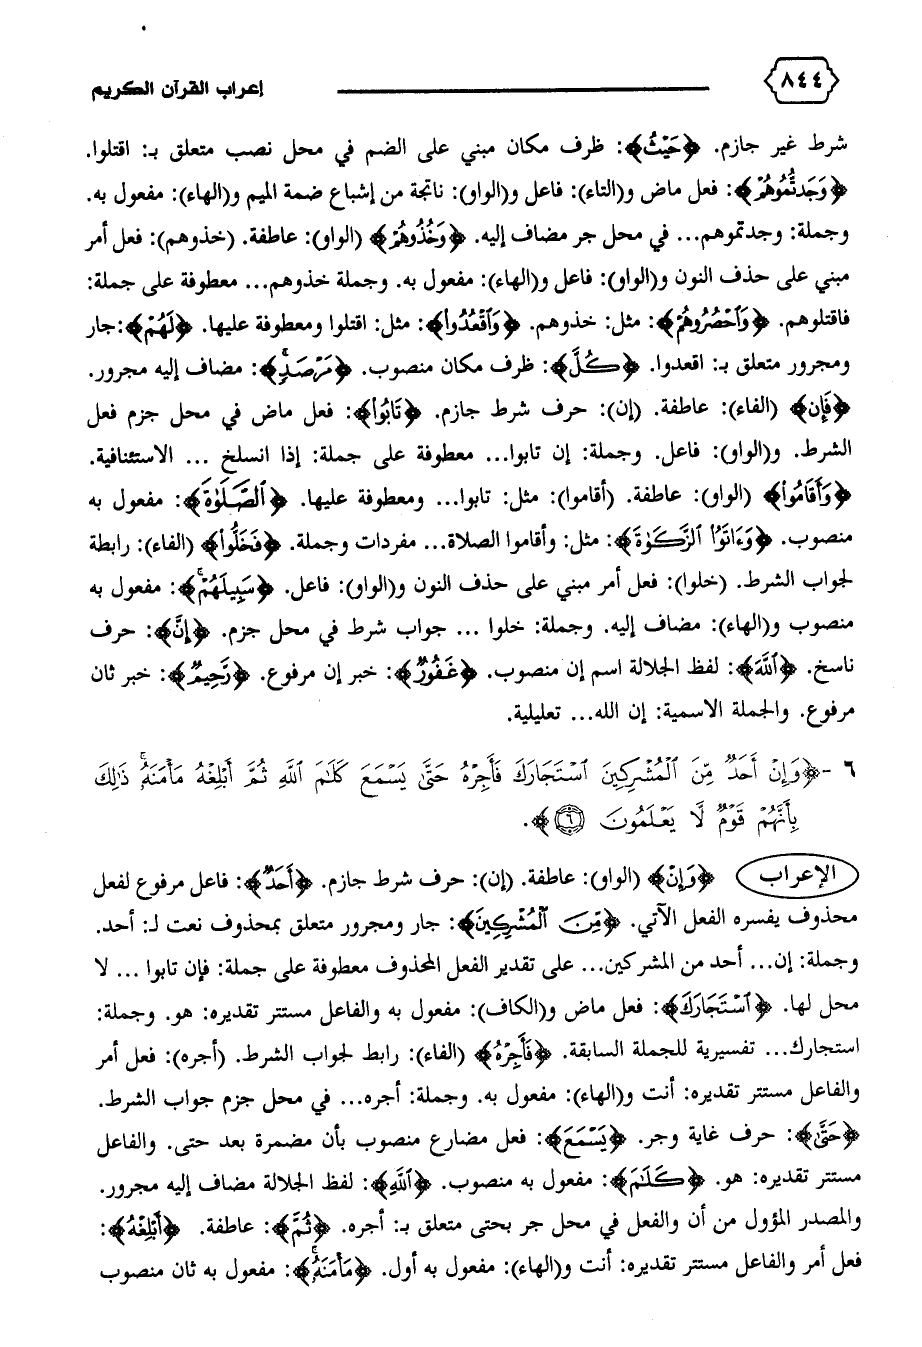 ٨٤٤
إعراب القرآن الكريم
شرط غير جازم. ﴿حَيْثُ﴾: ظرف مكان مبني على الضم في محل نصب متعلق بـ: اقتلوا.
﴿وَجَدتُّمُوهُمْ﴾: فعل ماض و(التاء): فاعل و(الواو): ناتجة من إشباع ضمة الميم و(الهاء): مفعول به.
وجملة: وجدتموهم... في محل جر مضاف إليه. ﴿وَخُذُوهُمْ﴾ (الواو): عاطفة. (خذوهم): فعل أمر
مبني على حذف النون و(الواو): فاعل و(الهاء): مفعول به. وجملة خذوهم... معطوفة على جملة:
فاقتلوهم. ﴿وَٱحْصُرُوهُمْ﴾: مثل: خذوهم. ﴿وَٱقْعُدُوا۟﴾: مثل: اقتلوا ومعطوفة عليها. ﴿لَهُمْ﴾:جار
ومجرور متعلق بـ: اقعدوا. ﴿كُلَّ﴾: ظرف مكان منصوب. ﴿مَرْصَدٍ ۚ﴾: مضاف إليه مجرور.
﴿فَإِن﴾ (الفاء): عاطفة. (إن): حرف شرط جازم. ﴿تَابُوا۟﴾: فعل ماض في محل جزم فعل
الشرط. و(الواو): فاعل. وجملة: إن تابوا... معطوفة على جملة: إذا انسلخ ... الاستئنافية.
﴿وَأَقَامُوا۟﴾ (الواو): عاطفة. (أقاموا): مثل: تابوا... ومعطوفة عليها. ﴿ٱلصَّلَوٰةَ﴾: مفعول به
منصوب. ﴿وَءَاتَوُا۟ ٱلزَّكَوٰةَ﴾: مثل: وأقاموا الصلاة... مفردات وجملة. ﴿فَخَلُّوا۟﴾ (الفاء): رابطة
لجواب الشرط. (خلوا): فعل أمر مبني على حذف النون و(الواو): فاعل. ﴿سَبِيلَهُمْ ۚ﴾: مفعول به
منصوب و(الهاء): مضاف إليه. وجملة: خلوا ... جواب شرط في محل جزم. ﴿إِنَّ﴾: حرف
ناسخ. ﴿ٱللَّهَ﴾: لفظ الجلالة اسم إن منصوب. ﴿غَفُورٌ﴾: خبر إن مرفوع. ﴿رَّحِيمٌ﴾: خبر ثان
مرفوع. والجملة الاسمية: إن الله... تعليلية.
٦ -﴿وَإِنْ أَحَدٌ مِّنَ ٱلْمُشْرِكِينَ ٱسْتَجَارَكَ فَأَجِرْهُ حَتَّىٰ يَسْمَعَ كَلَٰمَ ٱللَّهِ ثُمَّ أَبْلِغْهُ مَأْمَنَهُۥ ۚ ذَٰلِكَ
بِأَنَّهُمْ قَوْمٌ لَّا يَعْلَمُونَ ٦﴾.
الإعراب ﴿وَإِنْ﴾ (الواو): عاطفة. (إن): حرف شرط جازم. ﴿أَحَدٌ﴾: فاعل مرفوع لفعل
محذوف يفسره الفعل الآتي. ﴿مِّنَ ٱلْمُشْرِكِينَ﴾: جار ومجرور متعلق بمحذوف نعت لـ: أحد.
وجملة: إن... أحد من المشركين... على تقدير الفعل المحذوف معطوفة على جملة: فإن تابوا ... لا
محل لها. ﴿ٱسْتَجَارَكَ﴾: فعل ماض و(الكاف): مفعول به والفاعل مستتر تقديره: هو. وجملة:
استجارك... تفسيرية للجملة السابقة. ﴿فَأَجِرْهُ﴾ (الفاء): رابط لجواب الشرط. (أجره): فعل أمر
والفاعل مستتر تقديره: أنت و(الهاء): مفعول به. وجملة: أجره... في محل جزم جواب الشرط.
﴿حَتَّىٰ﴾: حرف غاية وجر. ﴿يَسْمَعَ﴾: فعل مضارع منصوب بأن مضمرة بعد حتى. والفاعل
مستتر تقديره: هو. ﴿كَلَٰمَ﴾: مفعول به منصوب. ﴿ٱللَّهِ﴾: لفظ الجلالة مضاف إليه مجرور.
والمصدر المؤول من أن والفعل في محل جر بحتى متعلق بـ: أجره. ﴿ثُمَّ﴾: عاطفة. ﴿أَبْلِغْهُ﴾:
فعل أمر والفاعل مستتر تقديره: أنت و(الهاء): مفعول به أول. ﴿مَأْمَنَهُۥ ۚ﴾: مفعول به ثان منصوب